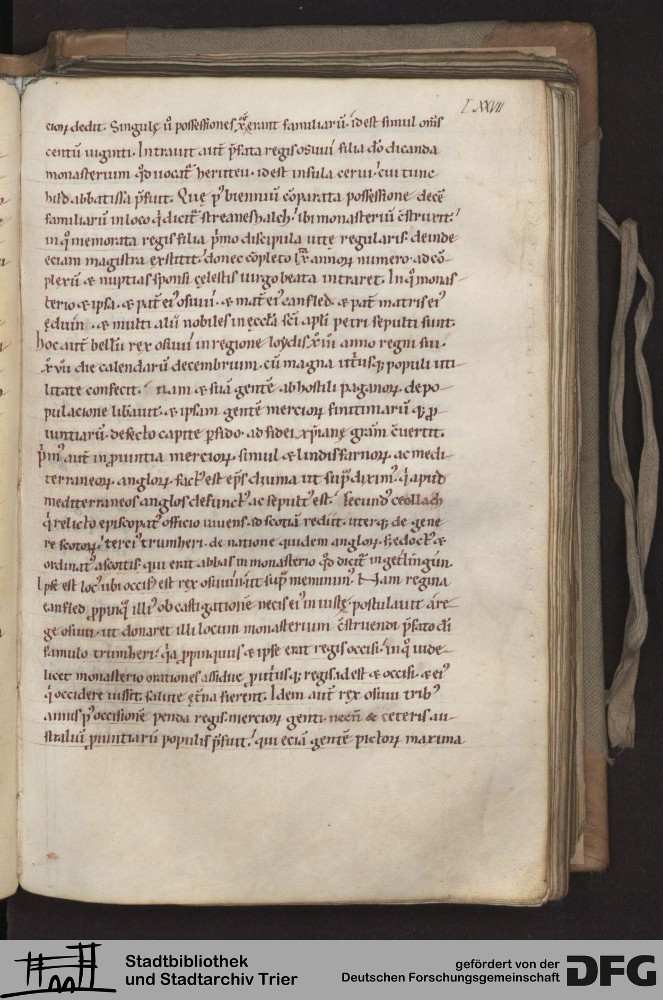 LXXVII
cioꝝ dedit. Singulę ů possessiones x̊ erant familiarũ. id est simul om̃s
centũ uiginti. Intrauit aut̃ p̃fata regis osuui filia dõ dicanda
monasterium qđ uocat᷑ heruteu. id est insula cerui. cui tunc
hild abbatissa p̃fuit. Quę p᷒ bienniũ cõparata possessione decẽ
familiarũ in loco q̇ dicit᷑ streaneshalch. ibi monasteriũ c̃struxit.
in q̊ memorata regis filia p̃mo discipula uitę regularis. deinde
eciam magistra exstitit. donec cõpleto lx̊ annoꝝ numero. ad cõ-
plexũ & nuptias sponsi cęlestis uirgo beata intraret. In q̊ monas-
terio & ipsa. & pat̃ ei᷒ osuui. & mat̃ ei᷒ eanfled. & pat̃ matris ei᷒
ęduin. & multi alii nobiles in ęcc̃ła sc̃i apłi petri sepulti sunt.
Hoc aut̃ bellũ rex osuui in regione loydis. x̊iii anno regni sui.
x̊vii die calendarũ decembrium. cũ magna ut̃usq; populi uti-
litate confecit. Nam & suã gentẽ ab hostili paganoꝝ depo-
pulacione lib̃auit. & ipsam gentẽ mercioꝝ finitimarũ q; ꝓ-
uintiarũ. desecto capite ꝑfido. ad fidei xp̃ianę grãm c̃uertit.
P̃m᷒ aut̃ in ꝓuintia mercioꝝ. simul & lindisfarnoꝝ. ac medi-
terraneoꝝ angloꝝ. fact᷒ est ep̃s diuma ut sup̃ dixim᷒. q̇ apud
mediterraneos anglos defunct᷒ ac sepult᷒ est. Secund᷒ ceollach
q̇ relicto episcopat᷒ officio uiuens ad scotiã rediit. uterq; de gene-
re scotoꝝ. terci᷒ trumheri. de natione quidem angloꝝ. sed edoct᷒ &
ordinat᷒ a scottis. qui erat abbas in monasterio qđ dicit᷑ ingetlingũn.
Ipse est loc᷒ ubi occis᷒ est rex osuuini. ut sup̃ meminim᷒. Nam regina
eanfled ꝓpinq̃ illi᷒ ob castigationẽ necis ei᷒ iniustę. postulauit a re-
ge osuui. ut donaret illi locum monasterium c̃struendi p̃fato di
famulo trumheri. q̃a ꝓpinquus & ipse erat regis occisi. in q̊ uide-
licet monasterio orationes assidue. ꝓ ut̃usq; regis. id est & occisi. & ei᷒
q̇ occidere iussit. salute et̃na fierent. Idem aut̃ rex osuui trib᷒
annis p᷒ occisionẽ penda regis. mercioꝝ genti. necñ & ceteris au-
straliũ ꝓuintiarũ populis p̃fuit. qui eciã gentẽ pictoꝝ maxima
Stadtbibliothek
und Stadtarchiv Trier
gefördert von der
Deutschen Forschungsgemeinschaft
DFG